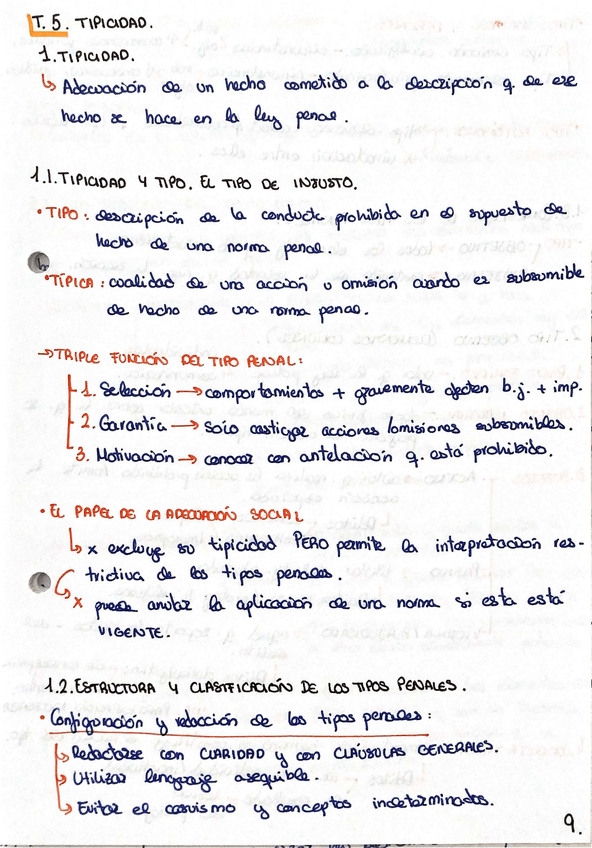 T. 5. TIPICIDAD.
1. TIPICIDAD.
↳ Adecuación de un hecho cometido a la descripción q. de ese
hecho se hace en la ley penal.
1.1. TIPICIDAD Y TIPO. EL TIPO DE INJUSTO.
• TIPO: descripción de la conducta prohibida en el supuesto de
hecho de una norma penal.
• TÍPICA: cualidad de una acción u omisión cuando es subsumible
de hecho de una norma penal.
→ TRIPLE FUNCIÓN DEL TIPO PENAL:
1. Selección → comportamientos + gravemente afecten b.j. + imp.
2. Garantía → solo castigar acciones/omisiones subsumibles.
3. Motivación → conocer con antelación q. está prohibido.
• EL PAPEL DE LA ADECUACIÓN SOCIAL
↳ x excluye su tipicidad PERO permite la interpretación res-
trictiva de los tipos penales.
↳ x puede anular la aplicación de una norma si esta está
VIGENTE.
1.2. ESTRUCTURA Y CLASIFICACIÓN DE LOS TIPOS PENALES.
• Configuración y redacción de los tipos penales:
↳ Redactarse con CLARIDAD y con CLÁUSULAS GENERALES.
↳ Utilizar lenguaje asequible.
↳ Evitar el casuismo y conceptos indeterminados.
9.